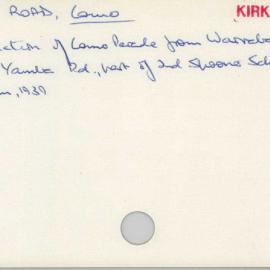 ROAD, Como KIRK
ction of Como Parade from Warraba
Yamba Rd., part of 2nd Spoons Sch
1939